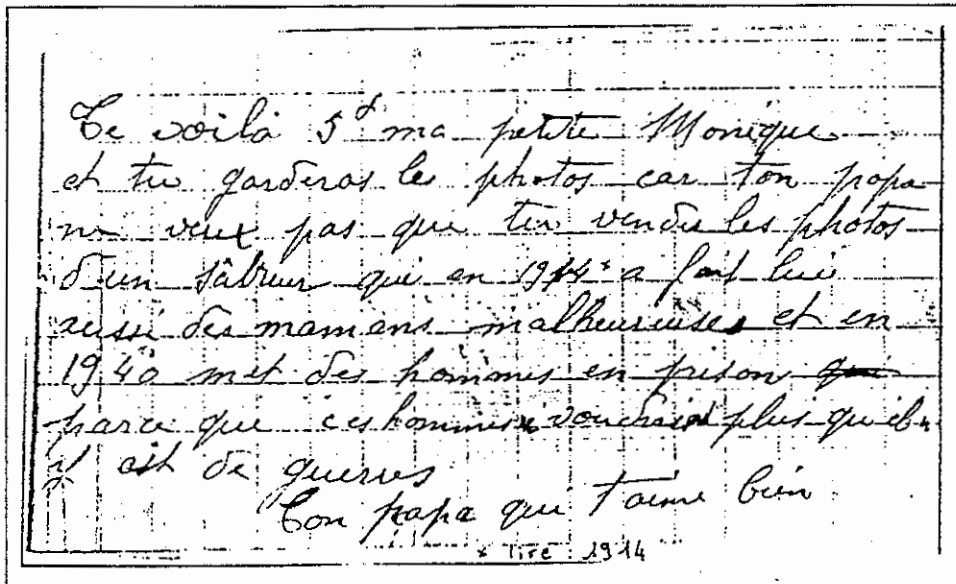 Te voilà 5d ma petite Monique
et tu garderas les photos car ton papa
ne veux pas que tu vendes les photos
d'un sâbreur qui en 1914* a fait lui
aussi des mamans malheureuses et en
1940 met des hommes en prison qui
parce que ces hommes voudrais plus qu'il n
y est de guerres
Ton papa qui t'aime bien
* lire 1914